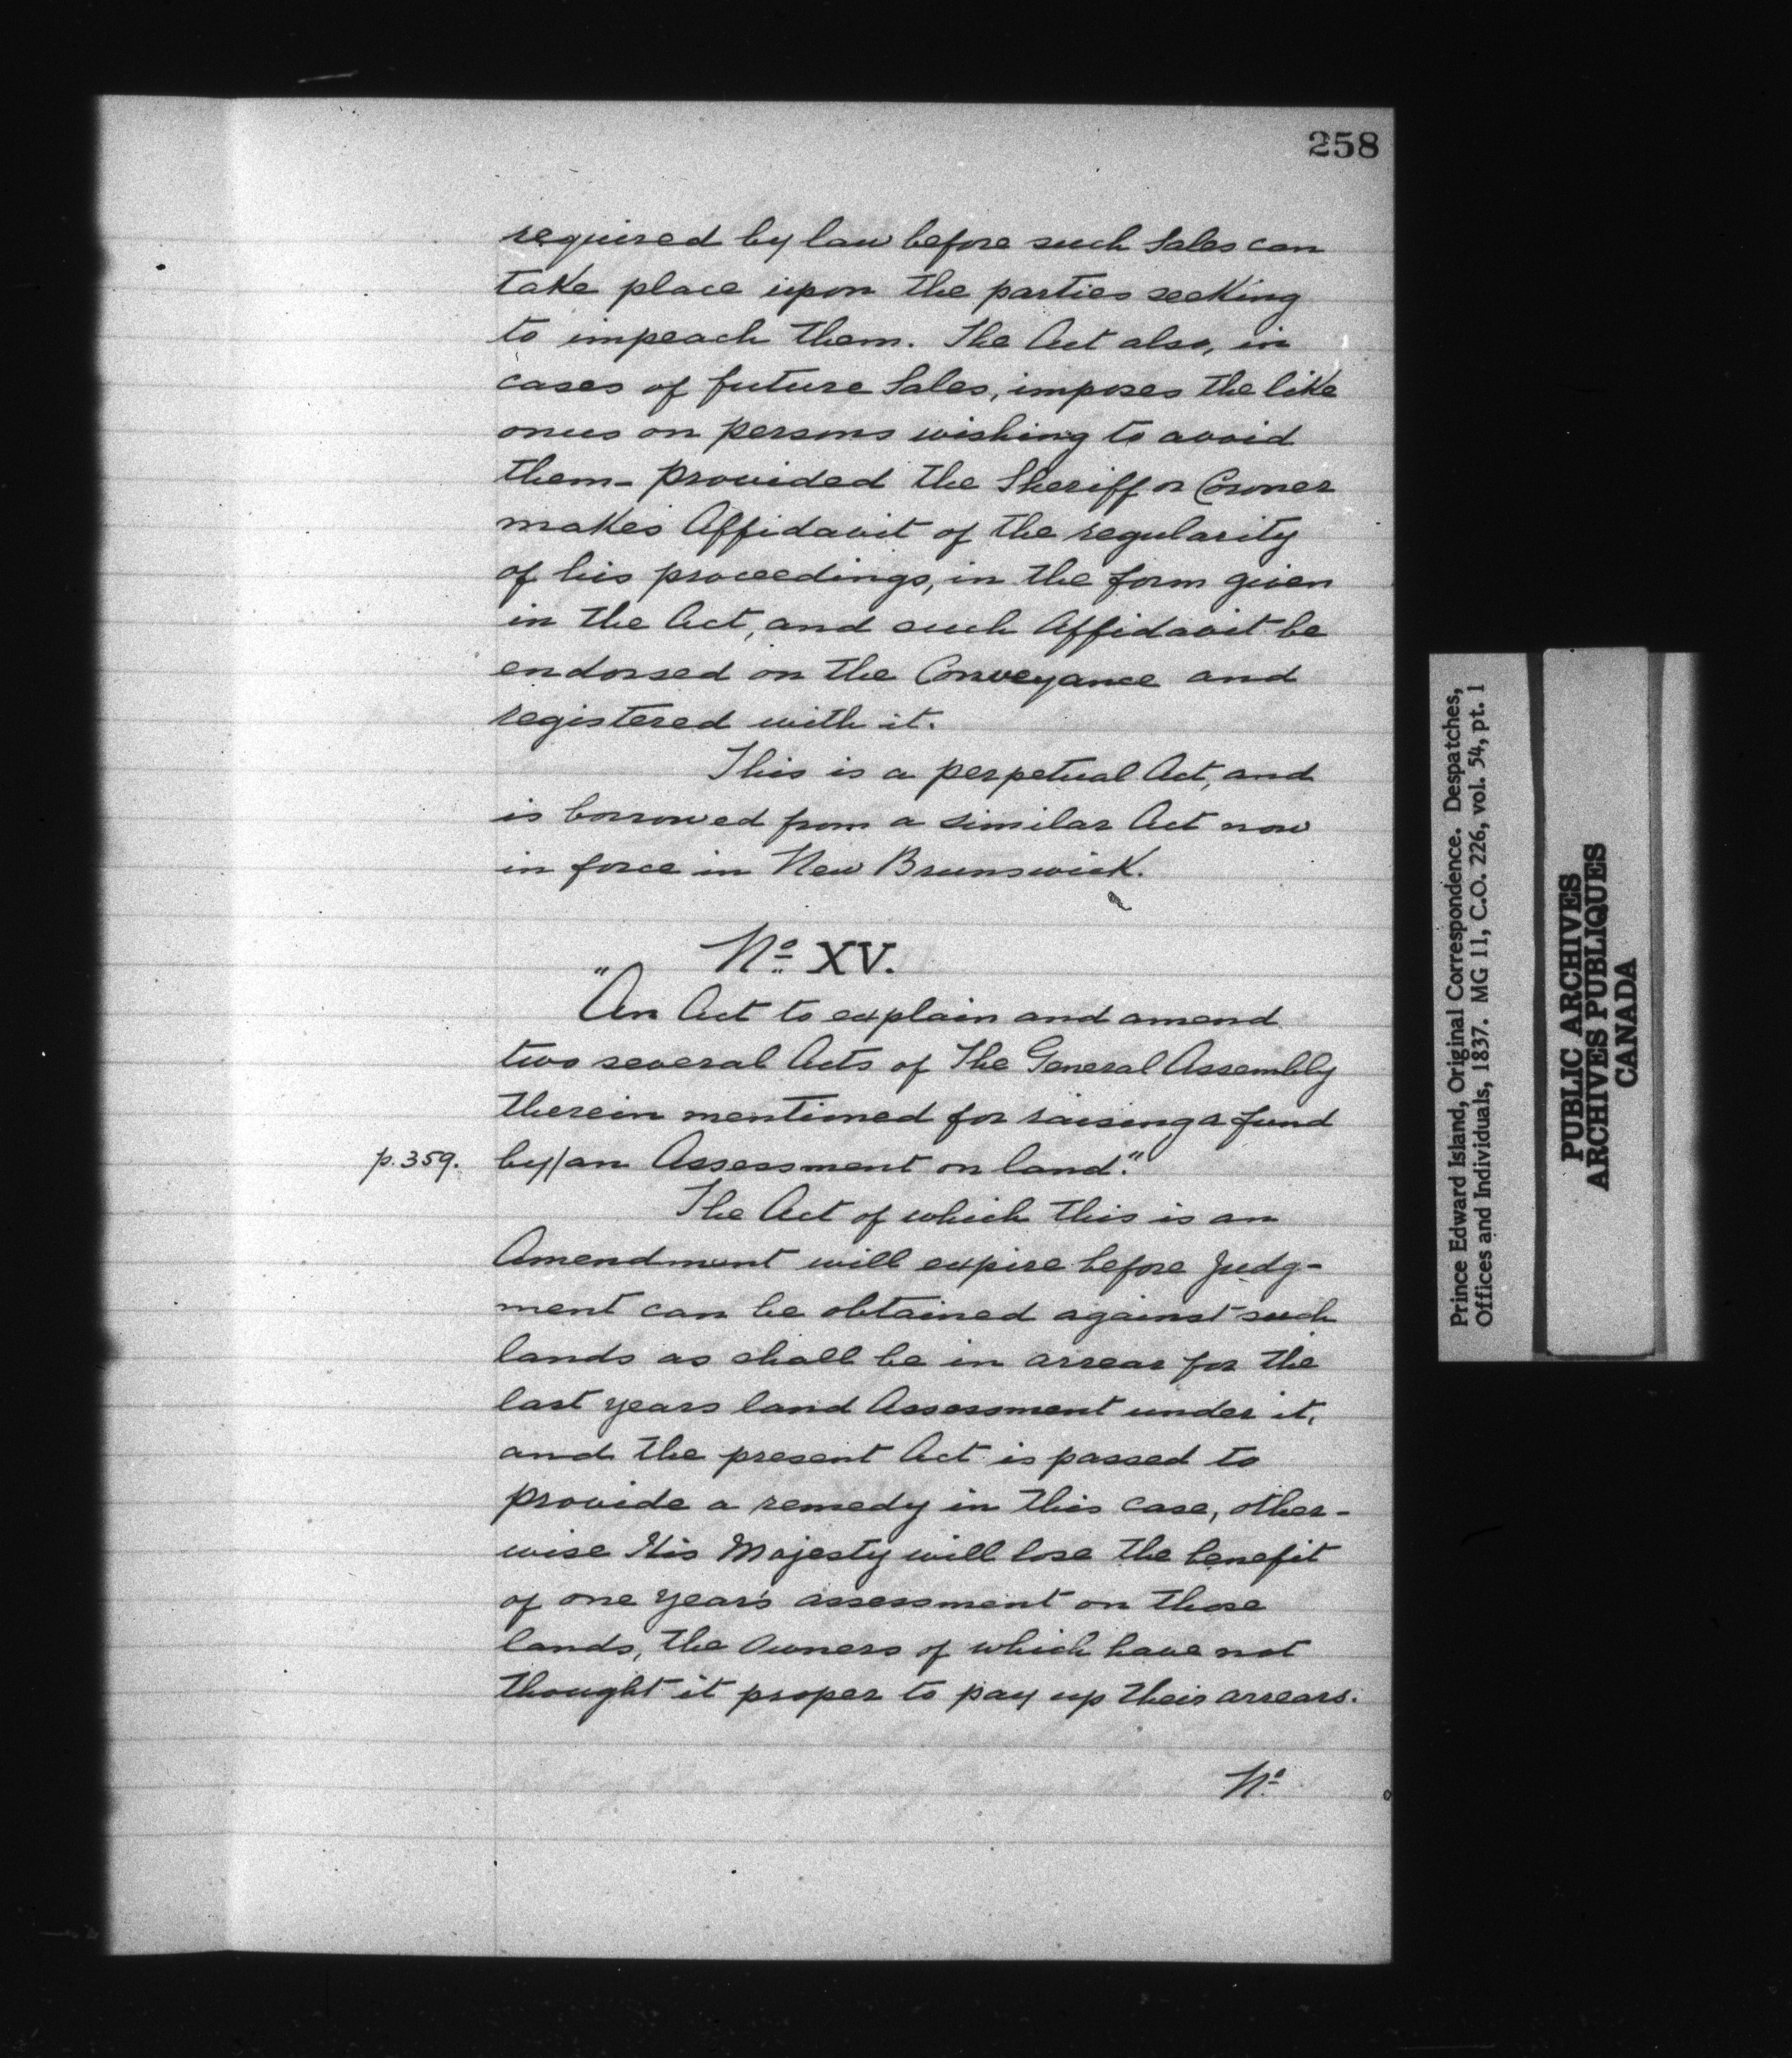 258
required by law before such Sales can
take place upon the parties seeking
to impeach them. The Act also, in
cases of future Sales, imposes the like
onus on persons wishing to avoid
them - provided the Sheriff or Coroner
makes Affidavit of the regularity
of his proceedings, in the form given
in the Act, and such Affidavit be
endorsed on the Conveyance and
registered with it.
This is a perpetual Act, and
is borrowed from a similar Act now
in force in New Brunswick.
No. XV.
"An Act to explain and amend
two several Acts of The General Assembly
therein mentioned for raising a fund
p. 359. by/an Assessment on land."
The Act of which this is an
Amendment will expire before Judg-
ment can be obtained against such
lands as shall be in arrear for the
last years land Assessment under it,
and the present Act is passed to
provide a remedy in this case, other-
wise His Majesty will lose the benefit
of one year's assessment on those
lands, the Owners of which have not
thought it proper to pay up their arrears.
No.
Prince Edward Island, Original Correspondence. Despatches,
Offices and Individuals, 1837. MG 11, C.O. 226, vol. 54, pt. 1
PUBLIC ARCHIVES
ARCHIVES PUBLIQUES
CANADA